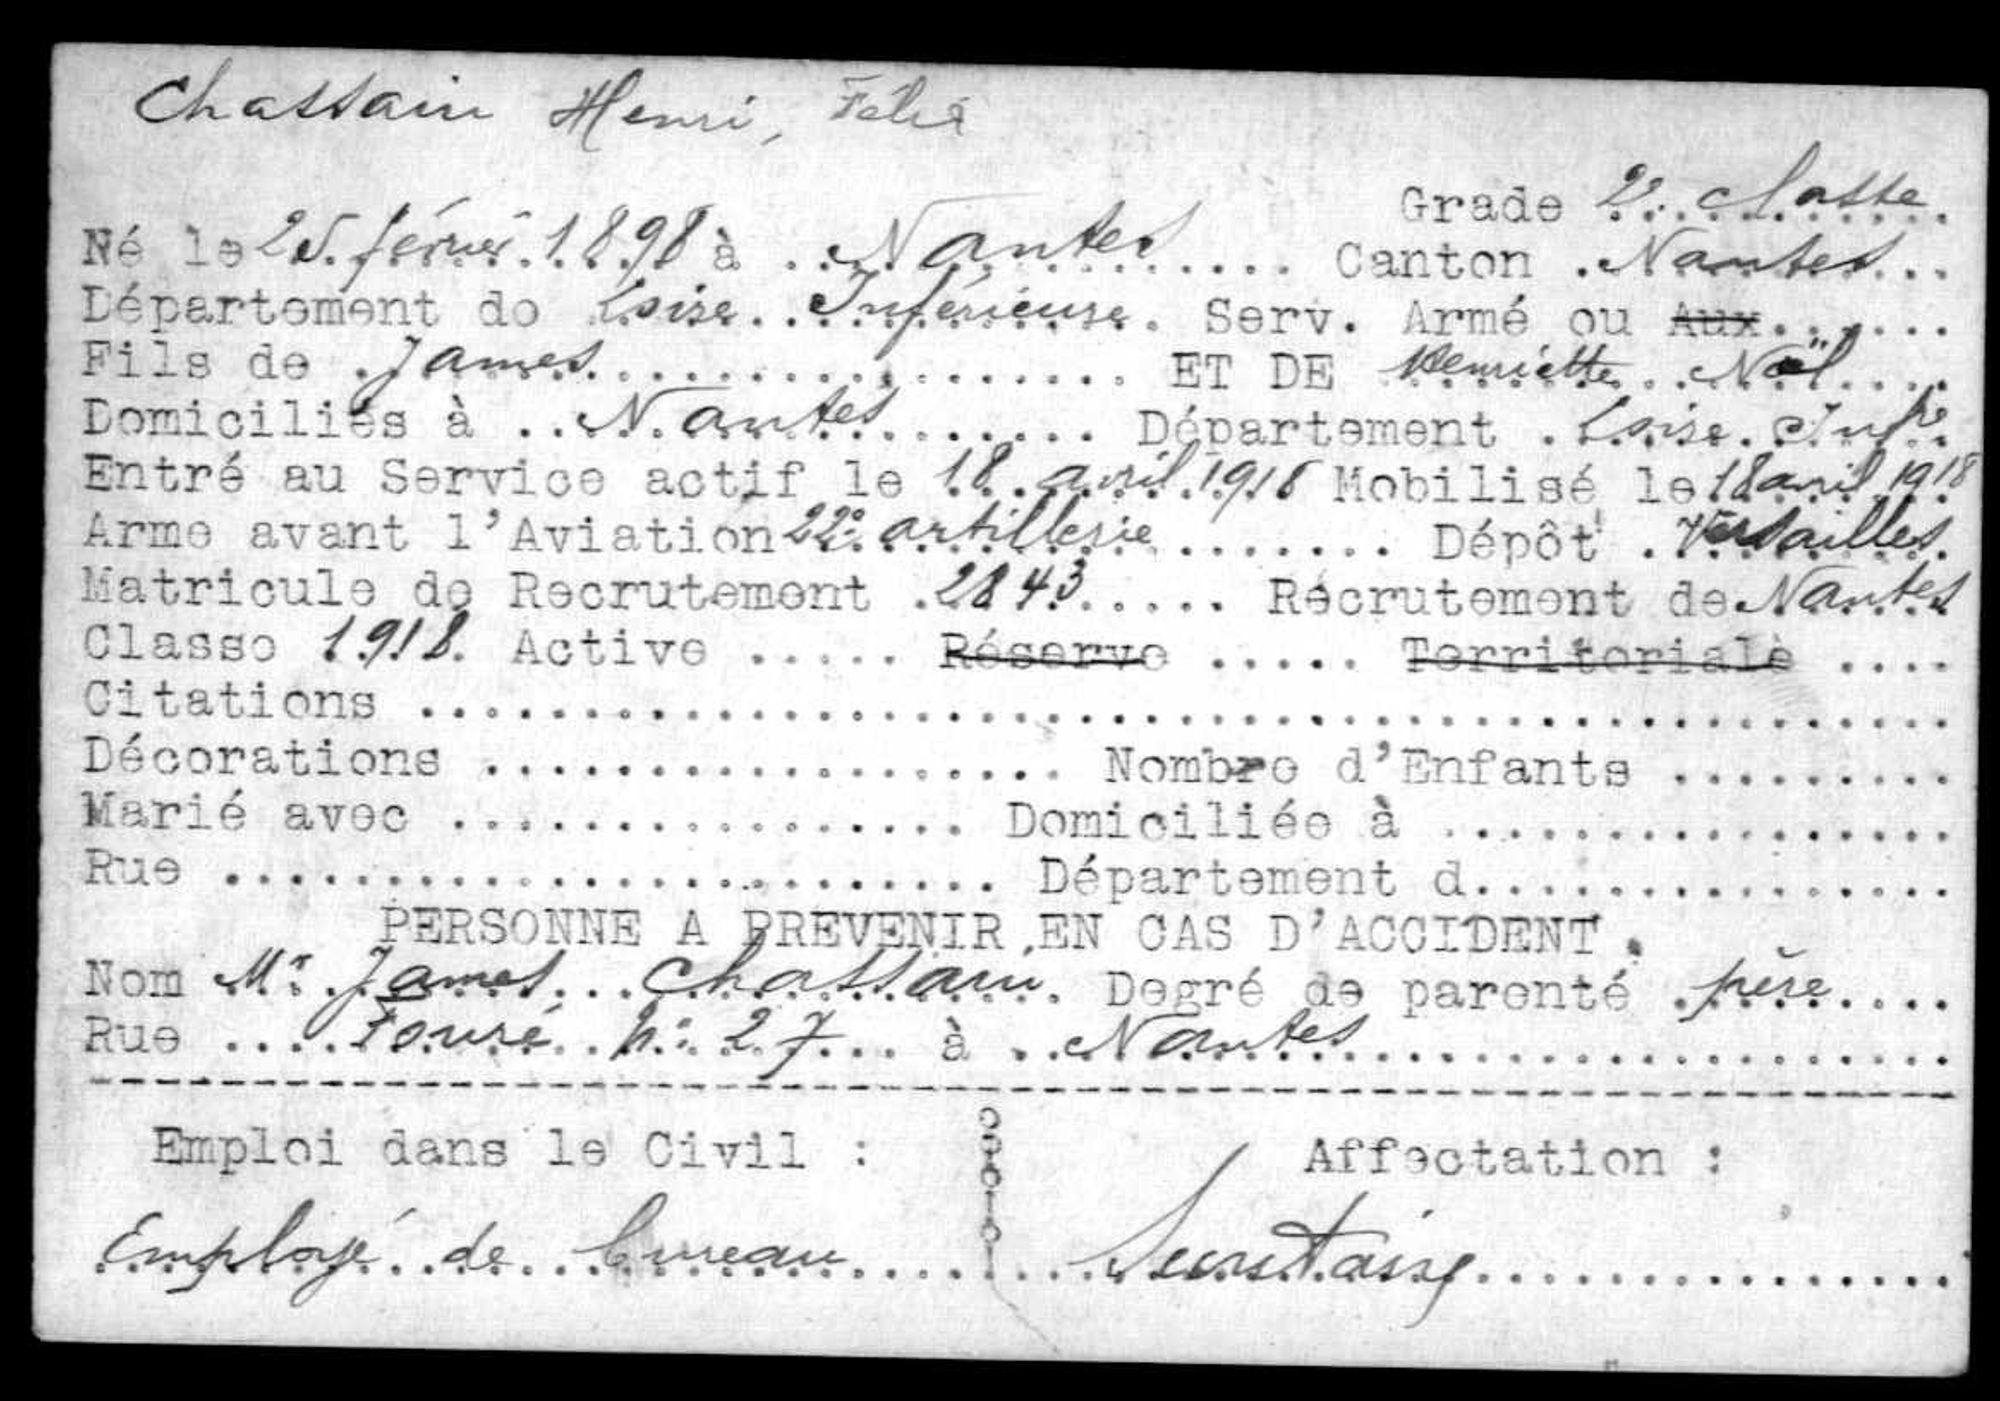 Chassain Henri, Félix
Grade 2e classe
Né le 25 février 1898 à Nantes Canton Nantes
Département de Loire Inférieure Serv. Armé ou Aux
Fils de James ET DE Henriette Noël
Domiciliés à Nantes Département Loire Infre
Entré au Service actif le 18 avril 1918 Mobilisé le 18 avril 1918
Arme avant l'Aviation 22e artillerie Dépôt Versailles
Matricule de Recrutement 2843 Récrutement de Nantes
Classe 1918 Active ..... Réserve ..... Territoriale ....
Citations ..............................
Décorations .................. Nombre d'Enfants .........
Marié avec ................ Domiciliée à ................
Rue ........................ Département d...............
PERSONNE A PREVENIR EN CAS D'ACCIDENT.
Nom Mr James Chassain Degré de parenté père
Rue Fouré No 27 à Nantes
Emploi dans le Civil : Affectation :
Employé de bureau Secrétaire